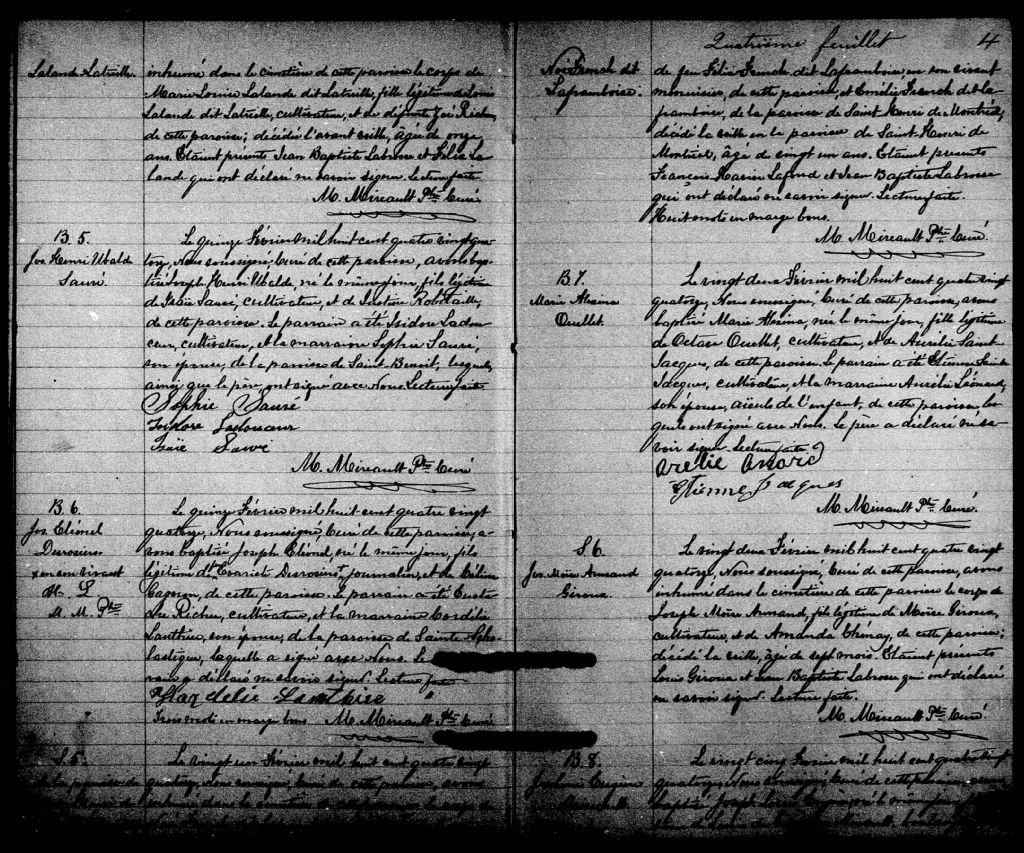 Lalande Latreille.
inhumé dans le cimetière de cette paroisse le corps de
Marie Louise Lalande dit Latreille, fille légitime de Louis
Lalande dit Latreille, cultivateur, et de défunte Zoé Richer,
de cette paroisse; décédée l'avant veille, âgée de onze
ans. Etaient présents Jean Baptiste Labrosse et Félix La-
lande qui ont déclaré ne savoir signer. Lecture faite
M. Mireault Ptre Curé
B. 5.
Jos. Henri Ubalde
Sauvé.
Le quinze Février mil huit cent quatre vingt qua-
torze, Nous soussigné, Curé de cette paroisse, avons bap-
tisé Joseph Henri Ubalde, né le même jour, fils légitime
de Isaïe Sauvé, cultivateur, et de Robitaille,
de cette paroisse. Le parrain a été Isidore Ladou-
ceur, cultivateur, et la marraine Sophie Sauvé,
son épouse, de la paroisse de Saint Benoit, lesquels,
ainsi que le père, ont signé avec Nous. Lecture faite
Sophie Sauvé
Isidore Ladouceur
Isaïe Sauvé
M. Mireault Ptre Curé
B. 6.
Jos. Elionel
Desrosiers.
x en son vivant
M. M. Ptre
Le quinze Février mil huit cent quatre vingt
quatorze, Nous soussigné, Curé de cette paroisse, a-
vons baptisé Joseph Elionel, né le même jour, fils
légitime d' Evariste Desrosiers, journalier, et de Céline
Gagnon, de cette paroisse. Le parrain a été
Richer, cultivateur, et la marraine Cordélie
Lanthier, son épouse, de la paroisse de Sainte Scho-
lastique, laquelle a signé avec Nous. Le
déclaré ne savoir signer. Lecture faite
Lanthier
Trois mots en marge bons M. Mireault Ptre Curé
S. 5.
Le vingt un Février mil huit cent quatre vingt
quatorze, Nous soussigné, Curé de cette paroisse, avons
Quatrième feuillet 4
French dit
Laframboise.
de feu Félix French dit Laframboise, en son vivant
menuisier, de cette paroisse, et Emélie French dit La-
framboise, de la paroisse de Saint Henri de Montréal,
décédé la veille en la paroisse de Saint Henri de
Montréal, âgé de vingt un ans. Etaient présents
François Xavier Lafond et Jean Baptiste Labrosse
qui ont déclaré ne savoir signer. Lecture faite.
Huit mots en marge bons.
M. Mireault Ptre Curé.
B 7.
Marie Alexina
Ouellet.
Le vingt deux Février mil huit cent quatre vingt
quatorze, Nous soussigné, Curé de cette paroisse, avons
baptisé Marie Alexina, née le même jour, fille légitime
de Octave Ouellet, cultivateur, et de Aurélie Saint
Jacques, de cette paroisse. Le parrain a été Etienne Saint
Jacques, cultivateur, et la marraine Aurélie Léonard,
son épouse, aïeuls de l'enfant, de cette paroisse, les-
quels ont signé avec Nous. Le père a déclaré ne sa-
voir signer. Lecture faite.
Etienne Jacques
M. Mireault Ptre Curé.
S. 6.
Jos. Moïse Armand
Giroux.
Le vingt deux Février mil huit cent quatre vingt
quatorze, Nous soussigné, Curé de cette paroisse, avons
inhumé dans le cimetière de cette paroisse le corps de
Joseph Moïse Armand, fils légitime de Moïse Giroux,
cultivateur, et de Amanda Ethier, de cette paroisse;
décédé la veille, âgé de sept mois. Etaient présents
Louis Giroux et Jean Baptiste Labrosse qui ont déclaré
ne savoir signer. Lecture faite.
M. Mireault Ptre Curé
B. 8.
Le vingt cinq Février mil huit cent quatre vingt
quatorze, Nous soussigné, Curé de cette paroisse, avons